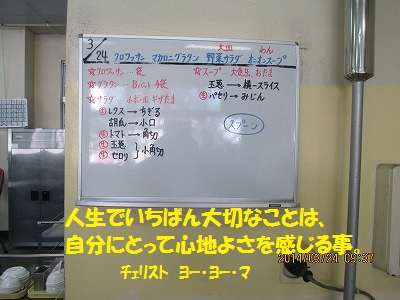 大皿 わん
3/24. クロワッサン マカロニグラタン 野菜サラダ オニオンスープ
☆クロワッサン…袋
☆グラタン…Bバット、
☆サラダ…小ボール、ギザだま
レタス→ちぎる
胡瓜→小口
トマト→角切
玉葱
セロリ } 小角切
☆スープ…大食缶、おたま
玉葱→横スライス
パセリ→みじん
スプーン
人生でいちばん大切なことは、
自分にとって心地よさを感じる事。
チェリスト ヨー・ヨー・マ
2014/03/24 09:37